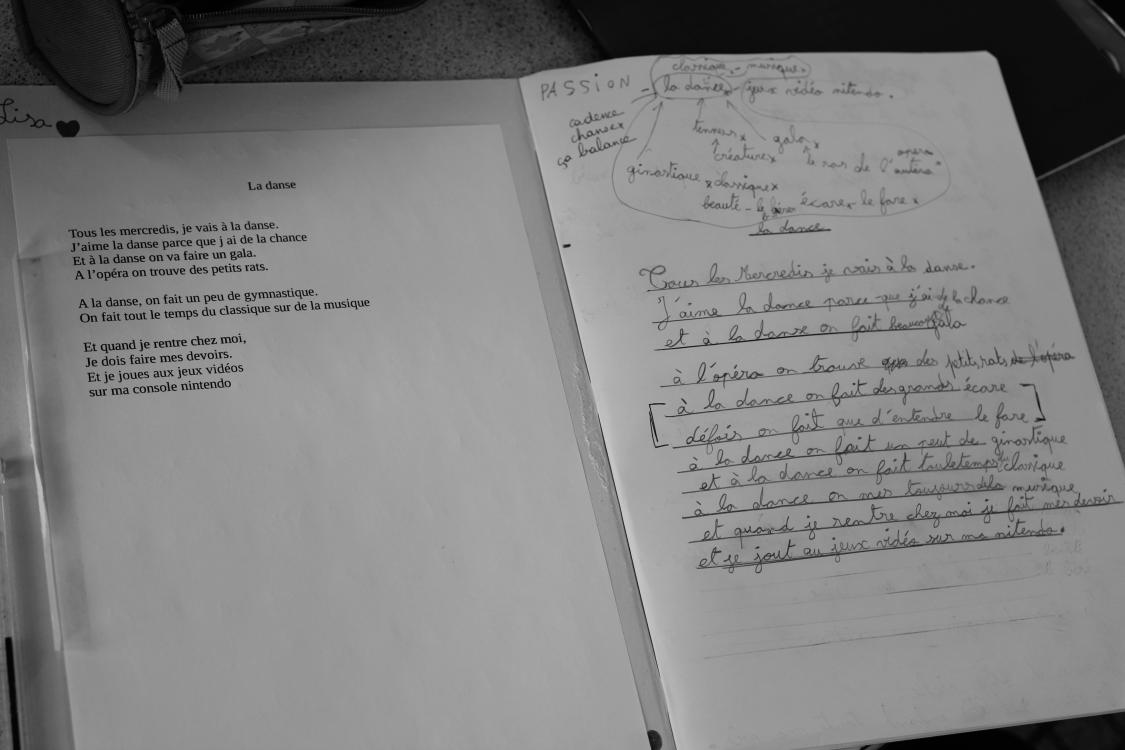 Lisa
La danse
Tous les mercredis, je vais à la danse.
J'aime la danse parce que j ai de la chance
Et à la danse on va faire un gala.
A l'opéra on trouve des petits rats.
A la danse, on fait un peu de gymnastique.
On fait tout le temps du classique sur de la musique
Et quand je rentre chez moi,
Je dois faire mes devoirs.
Et je joues aux jeux vidéos
sur ma console nintendo
classique - musique
PASSION - la dance - jeux vidéo nitendo.
cadence
chance
ça balance
gala
créature
le ras de l'
opera
ginastique
classique
beauté - écare le fare
la dance
Tous les Mercredis je vais à la danse.
J'aime la dance parce que j'ai de la chance
et à la danse on fait gala
à l'opéra on trouve des petits rats de l'opéra
à la dance on fait des grands écare
défois on fait que d'entendre le fare
à la dance on fait un peut de ginastique
et à la dance on fait touletemps du classique
à la dance on mes toujours dela musique
et quand je rentre chez moi je fait mes devoir
et je jout au jeux vidéo sur ma nitendo.